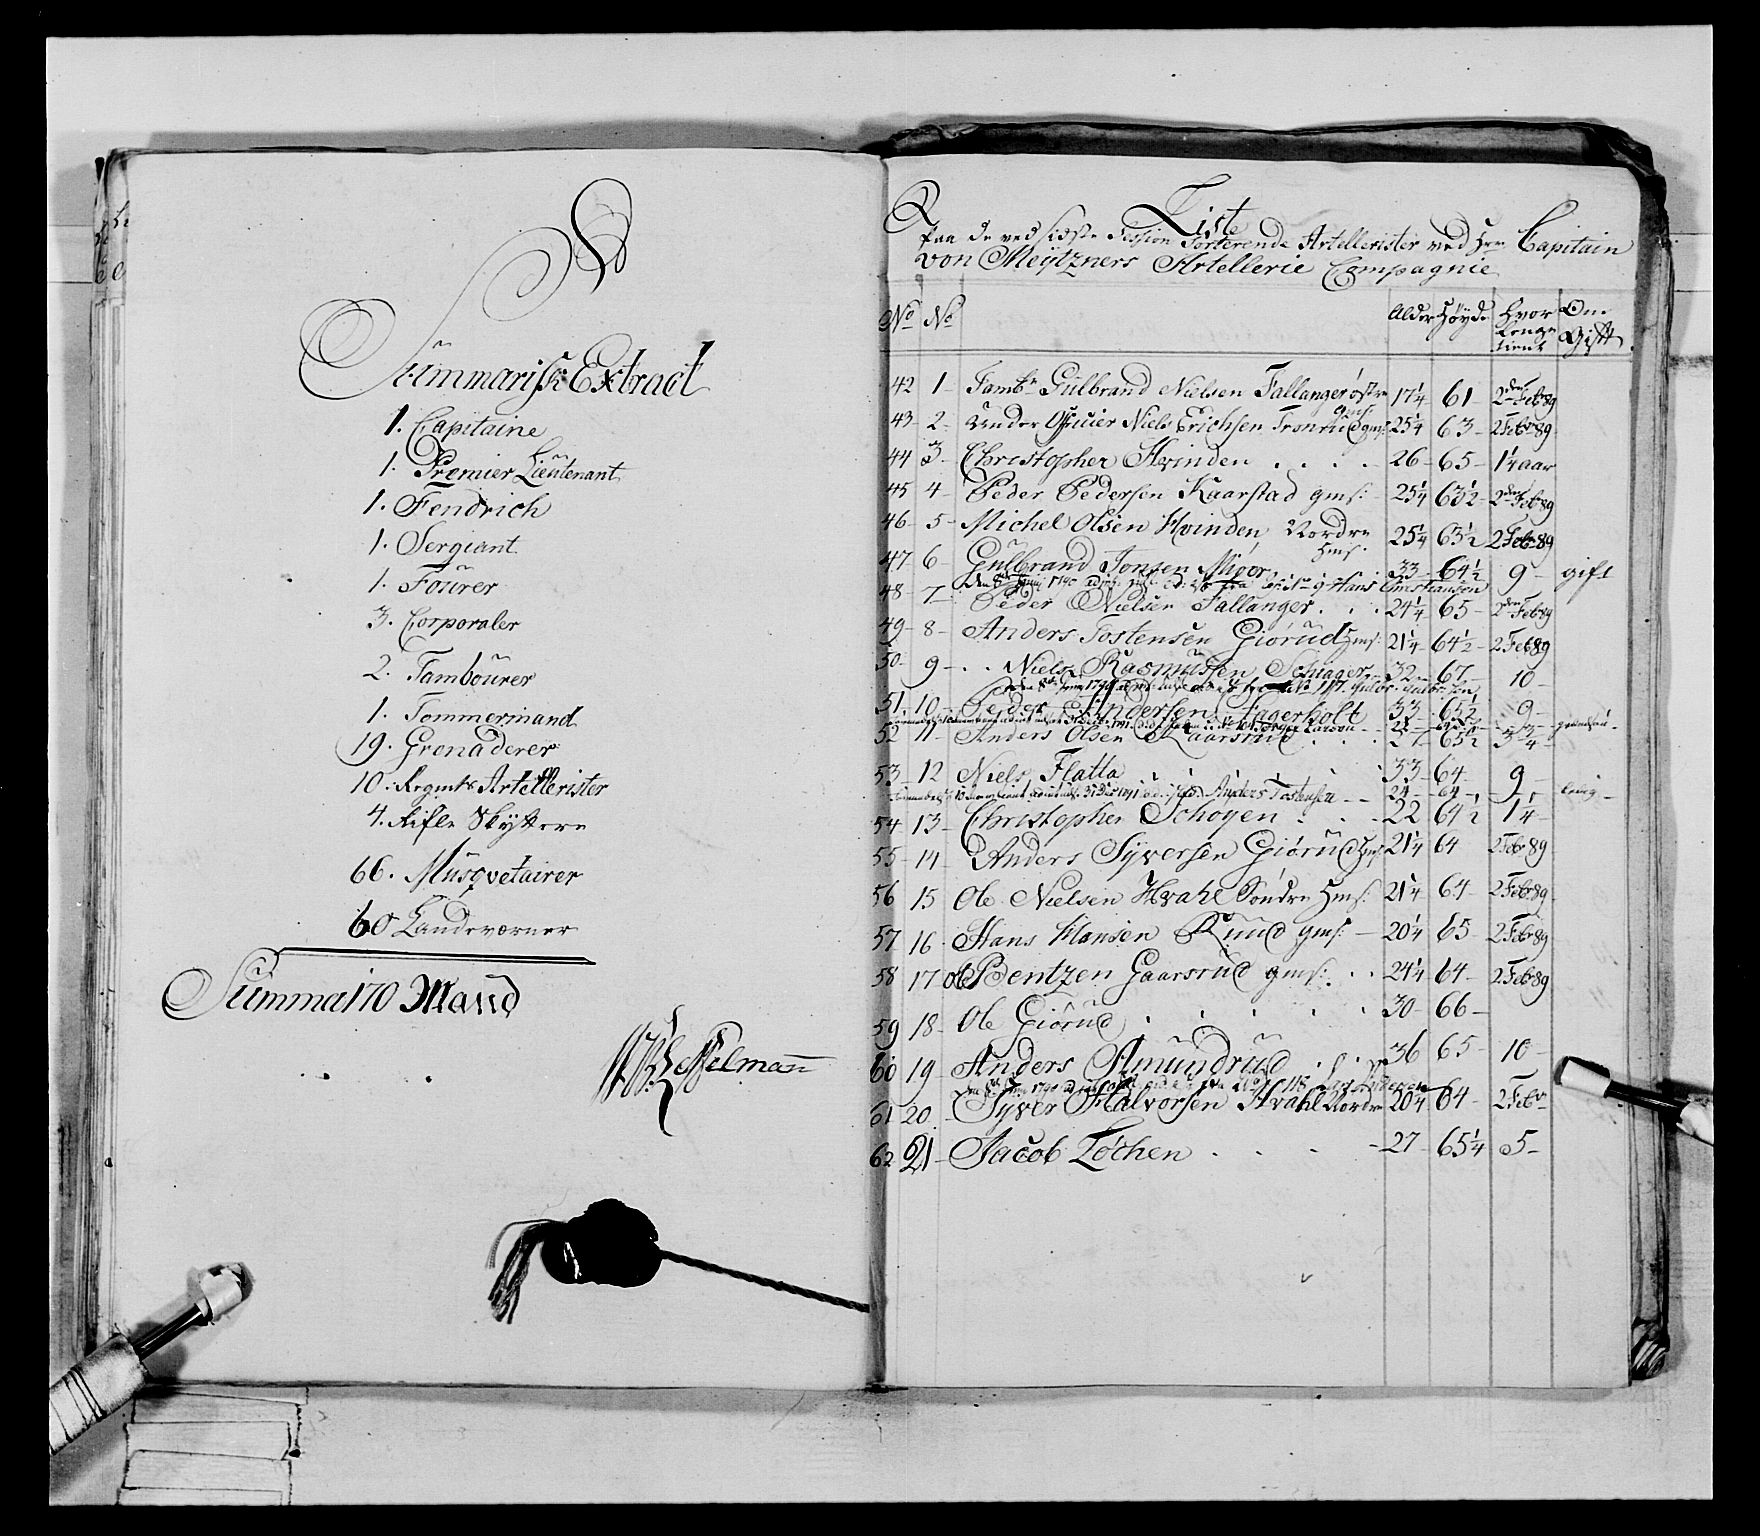 Summarisk Extract
1. Capitaine
1. Premier Lieutenant
1. Fendrich
1. Sergiant
1. Fourer
3. Corporaler
2. Tambourer
1. Tommermand
19. Grenaderer
10. Regmts Artellerister
4. Rifle Skyttere
66. Musqvetairer
60 Landeværner
Summa 170 Mand
Kesselmann
Liste
Paa de ved sidste Session Sorterende Artellerister ved Hrr Capitain
von Meytzners Artellerie Compagnie
No No Alder Høyde Hvor Om
Længe Gift
tient
42 1 - Tambr Gulbrand Nielsen Fallanger østre 17 1/4 61 - 2den Febr 89
gms:
43 - 2 - Under Officier Niels Erichsen Tronrud gms: 25 1/4 63 - 2 Febr 89
44 3 - Christopher Hvinden . . . . 26 - 65 - 1 1/4 aar
45 4 - Peder Pedersen Kaarstad gms: - 25 1/4 63 1/2 - 2den Febr 89
46 - 5 - Michel Olsen Hvinden Nordre 25 1/4 63 1/2 2 Febr 89
hms:
47 6 - Gulbrand Jonsen Mioer 33 - 64 1/2 9 - gift
Den 8de Juni 1790 No 9 Hans Christiansen
48 - 7 - Peder Nielsen Fallanger . . . 24 1/4 65 - 2den Febr 89
49 - 8 - Anders Tostensen Giørud hms: 21 1/4 64 1/2 - 2 Febr 89
50 - 9 - . . Niels Rasmussen Schiager - 32 - 67 - 10 -
No 117
51 10 - Peder Andersen Fagerholt 33 - 65 1/2 9 -
Larsen
52 11 - Anders Olsen Kaarsrud . . . 65 1/2 3 1/4 -
53 - 12 Niels Flatla . . 33 - 64 - 9 -
Anders Tostensen - - 24 - 64 - ledig -
54 - 13 - Christopher Schoyen . . - 22 64 1/2 1 1/4 -
55 - 14 - Anders Syversen Giørud hms: 21 1/4 64 2 Febr 89
56 15 - Ole Nielsen Hvahl Søndre hms: 21 1/4 64 - 2 Febr 89
57 16 - Hans Hansen Ruud gms: - 20 1/4 65 - 2 Febr 89
58 17 Ole Bentzen Gaarsrud gms: . . 24 1/4 64 - 2 Febr 89
59 18 - Ole Giørud . . . . . 30 - 66 -
60 19 - Anders Amundrud . . . 36 65 - 10 -
No 118
61 20 - Syver Halvorsen Hvahl Nordre 20 1/4 64 - 2 Febr
62 21 - Jacob Løchen . . . - 27 - 65 1/4 5 -